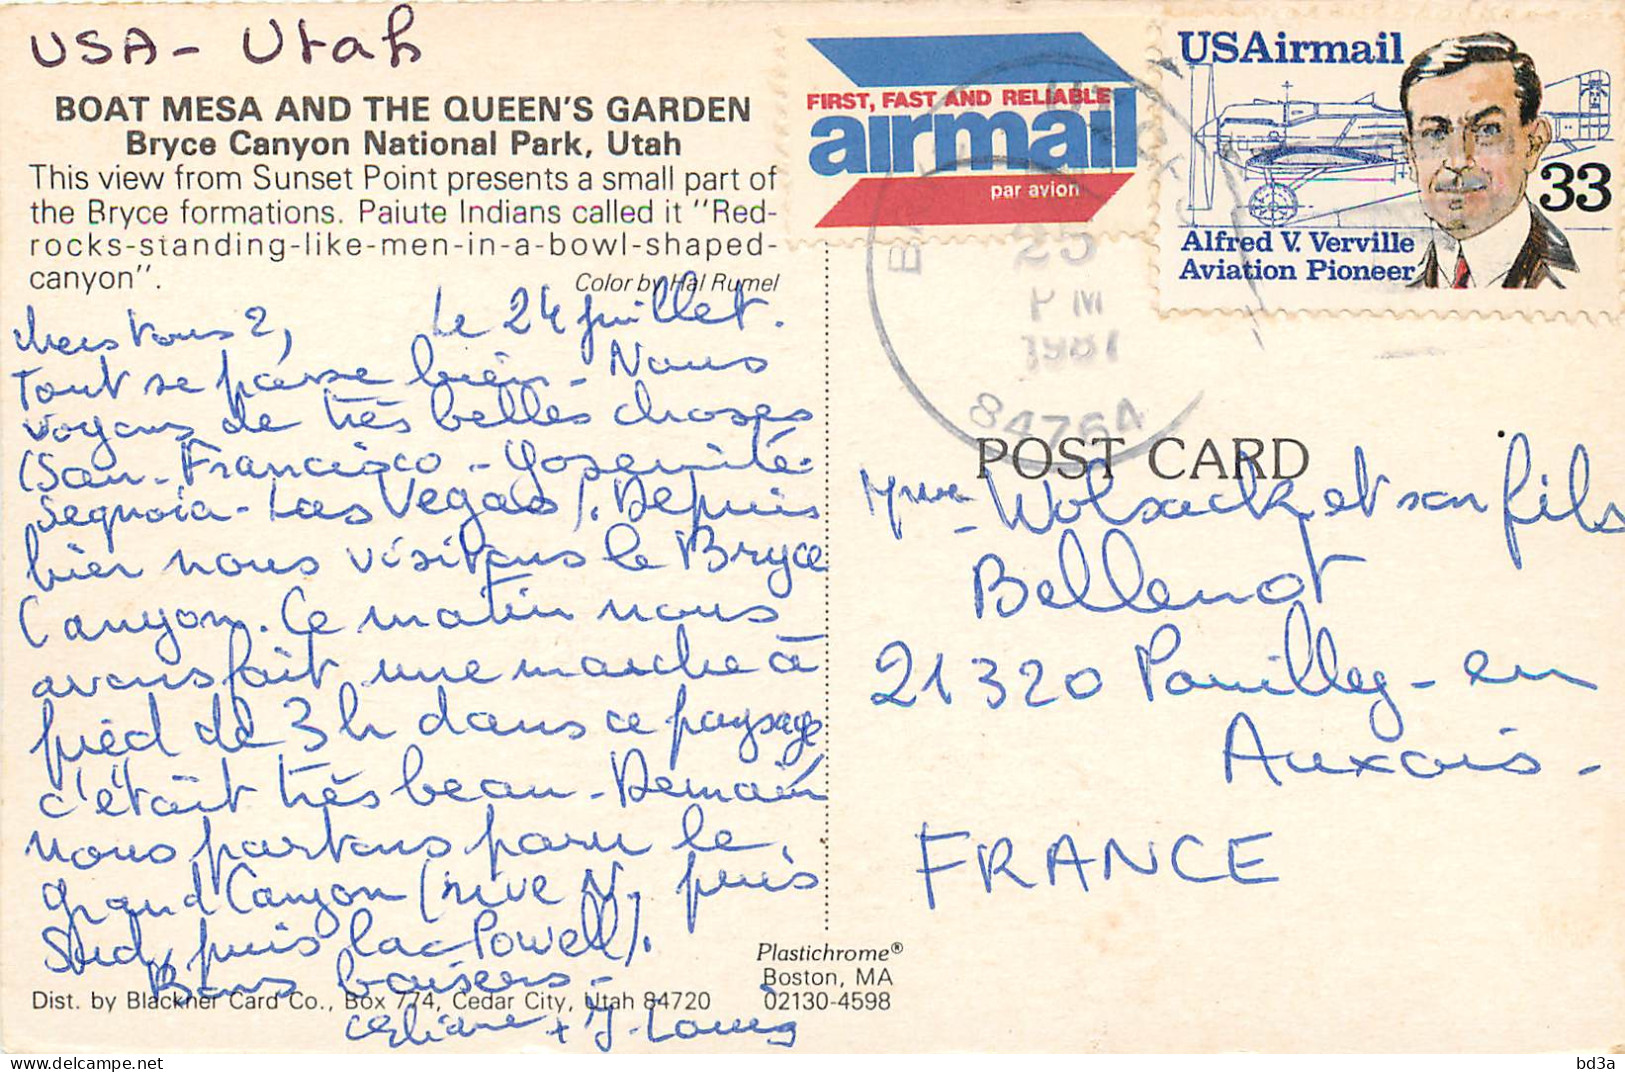 USA - Utah
BOAT MESA AND THE QUEEN'S GARDEN
Bryce Canyon National Park, Utah
This view from Sunset Point presents a small part of
the Bryce formations. Paiute Indians called it "Red-
rocks-standing-like-men-in-a-bowl-shaped-
canyon".
Color by Hal Rumel
Le 24 juillet.
Chers tous 2,
Tout se passe bien - Nous
voyons de très belles choses
(San-Francisco - Yosemite -
Sequoia - Las Vegas). Depuis
hier nous visitons le Bryce
Canyon. Ce matin nous
avons fait une marche à
pied de 3h dans ce paysage
c'était très beau - Demain
nous partons pour le
Grand Canyon (rive N, puis
Sud, puis lac Powell).
Bons baisers -
Eliane + J. Louis
Dist. by Blackner Card Co., Box 774, Cedar City, Utah 84720
Plastichrome®
Boston, MA
02130-4598
FIRST, FAST AND RELIABLE
airmail
par avion
USAirmail
33
Alfred V. Verville
Aviation Pioneer
25
PM
1987
84764
POST CARD
Mme Wolsack et son fils
Bellenot
21320 Pouilly-en
Auxois -
FRANCE
bd3a